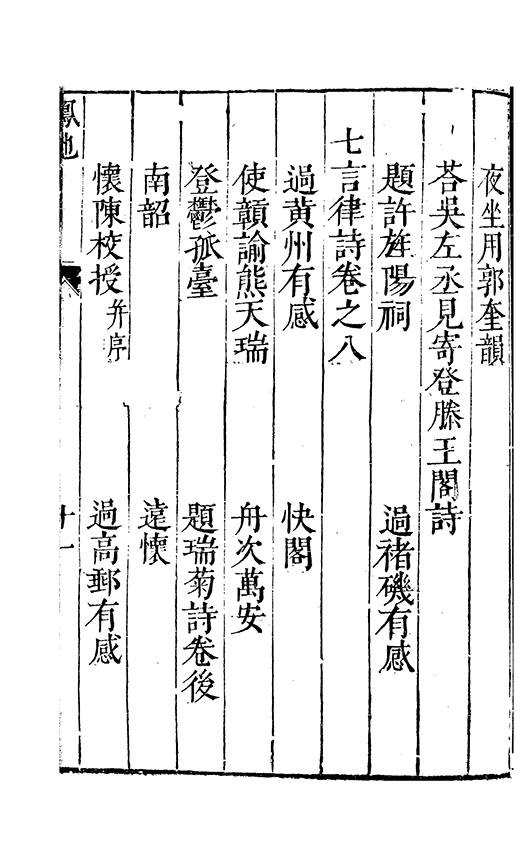 夜坐用郭奎韻
荅吳左丞見寄登滕王閣詩
題許旌陽祠　過褚磯有感
七言律詩卷之八
過黄州有感　快閣
使贑諭熊天瑞　舟次萬安
登鬱孤臺　題瑞菊詩卷後
南韶　遠懷
懷陳校授并序　過高郵有感
十一